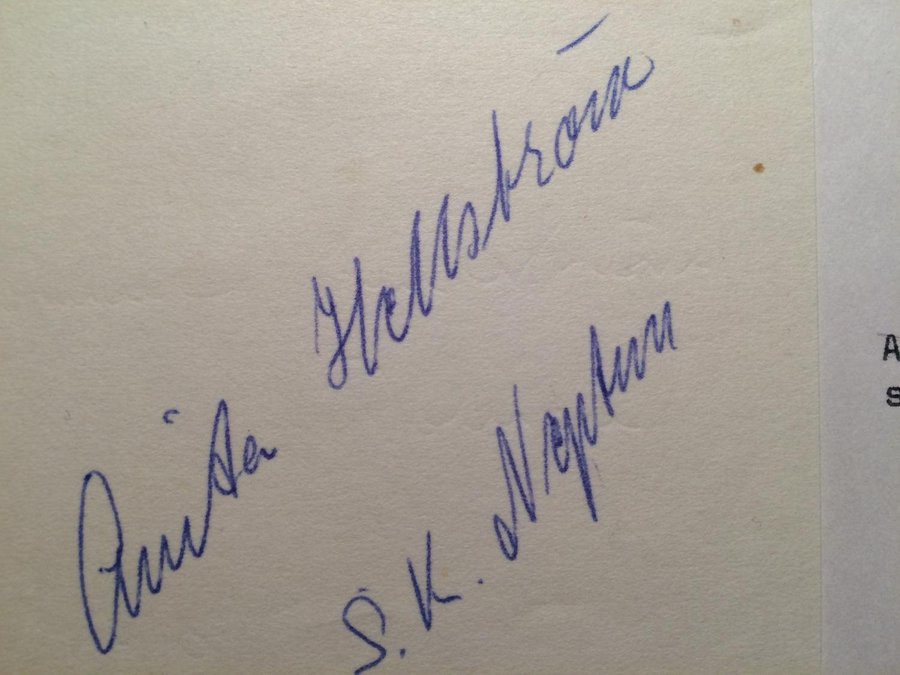 Anita Hellström
S.K. Neptun
A
s